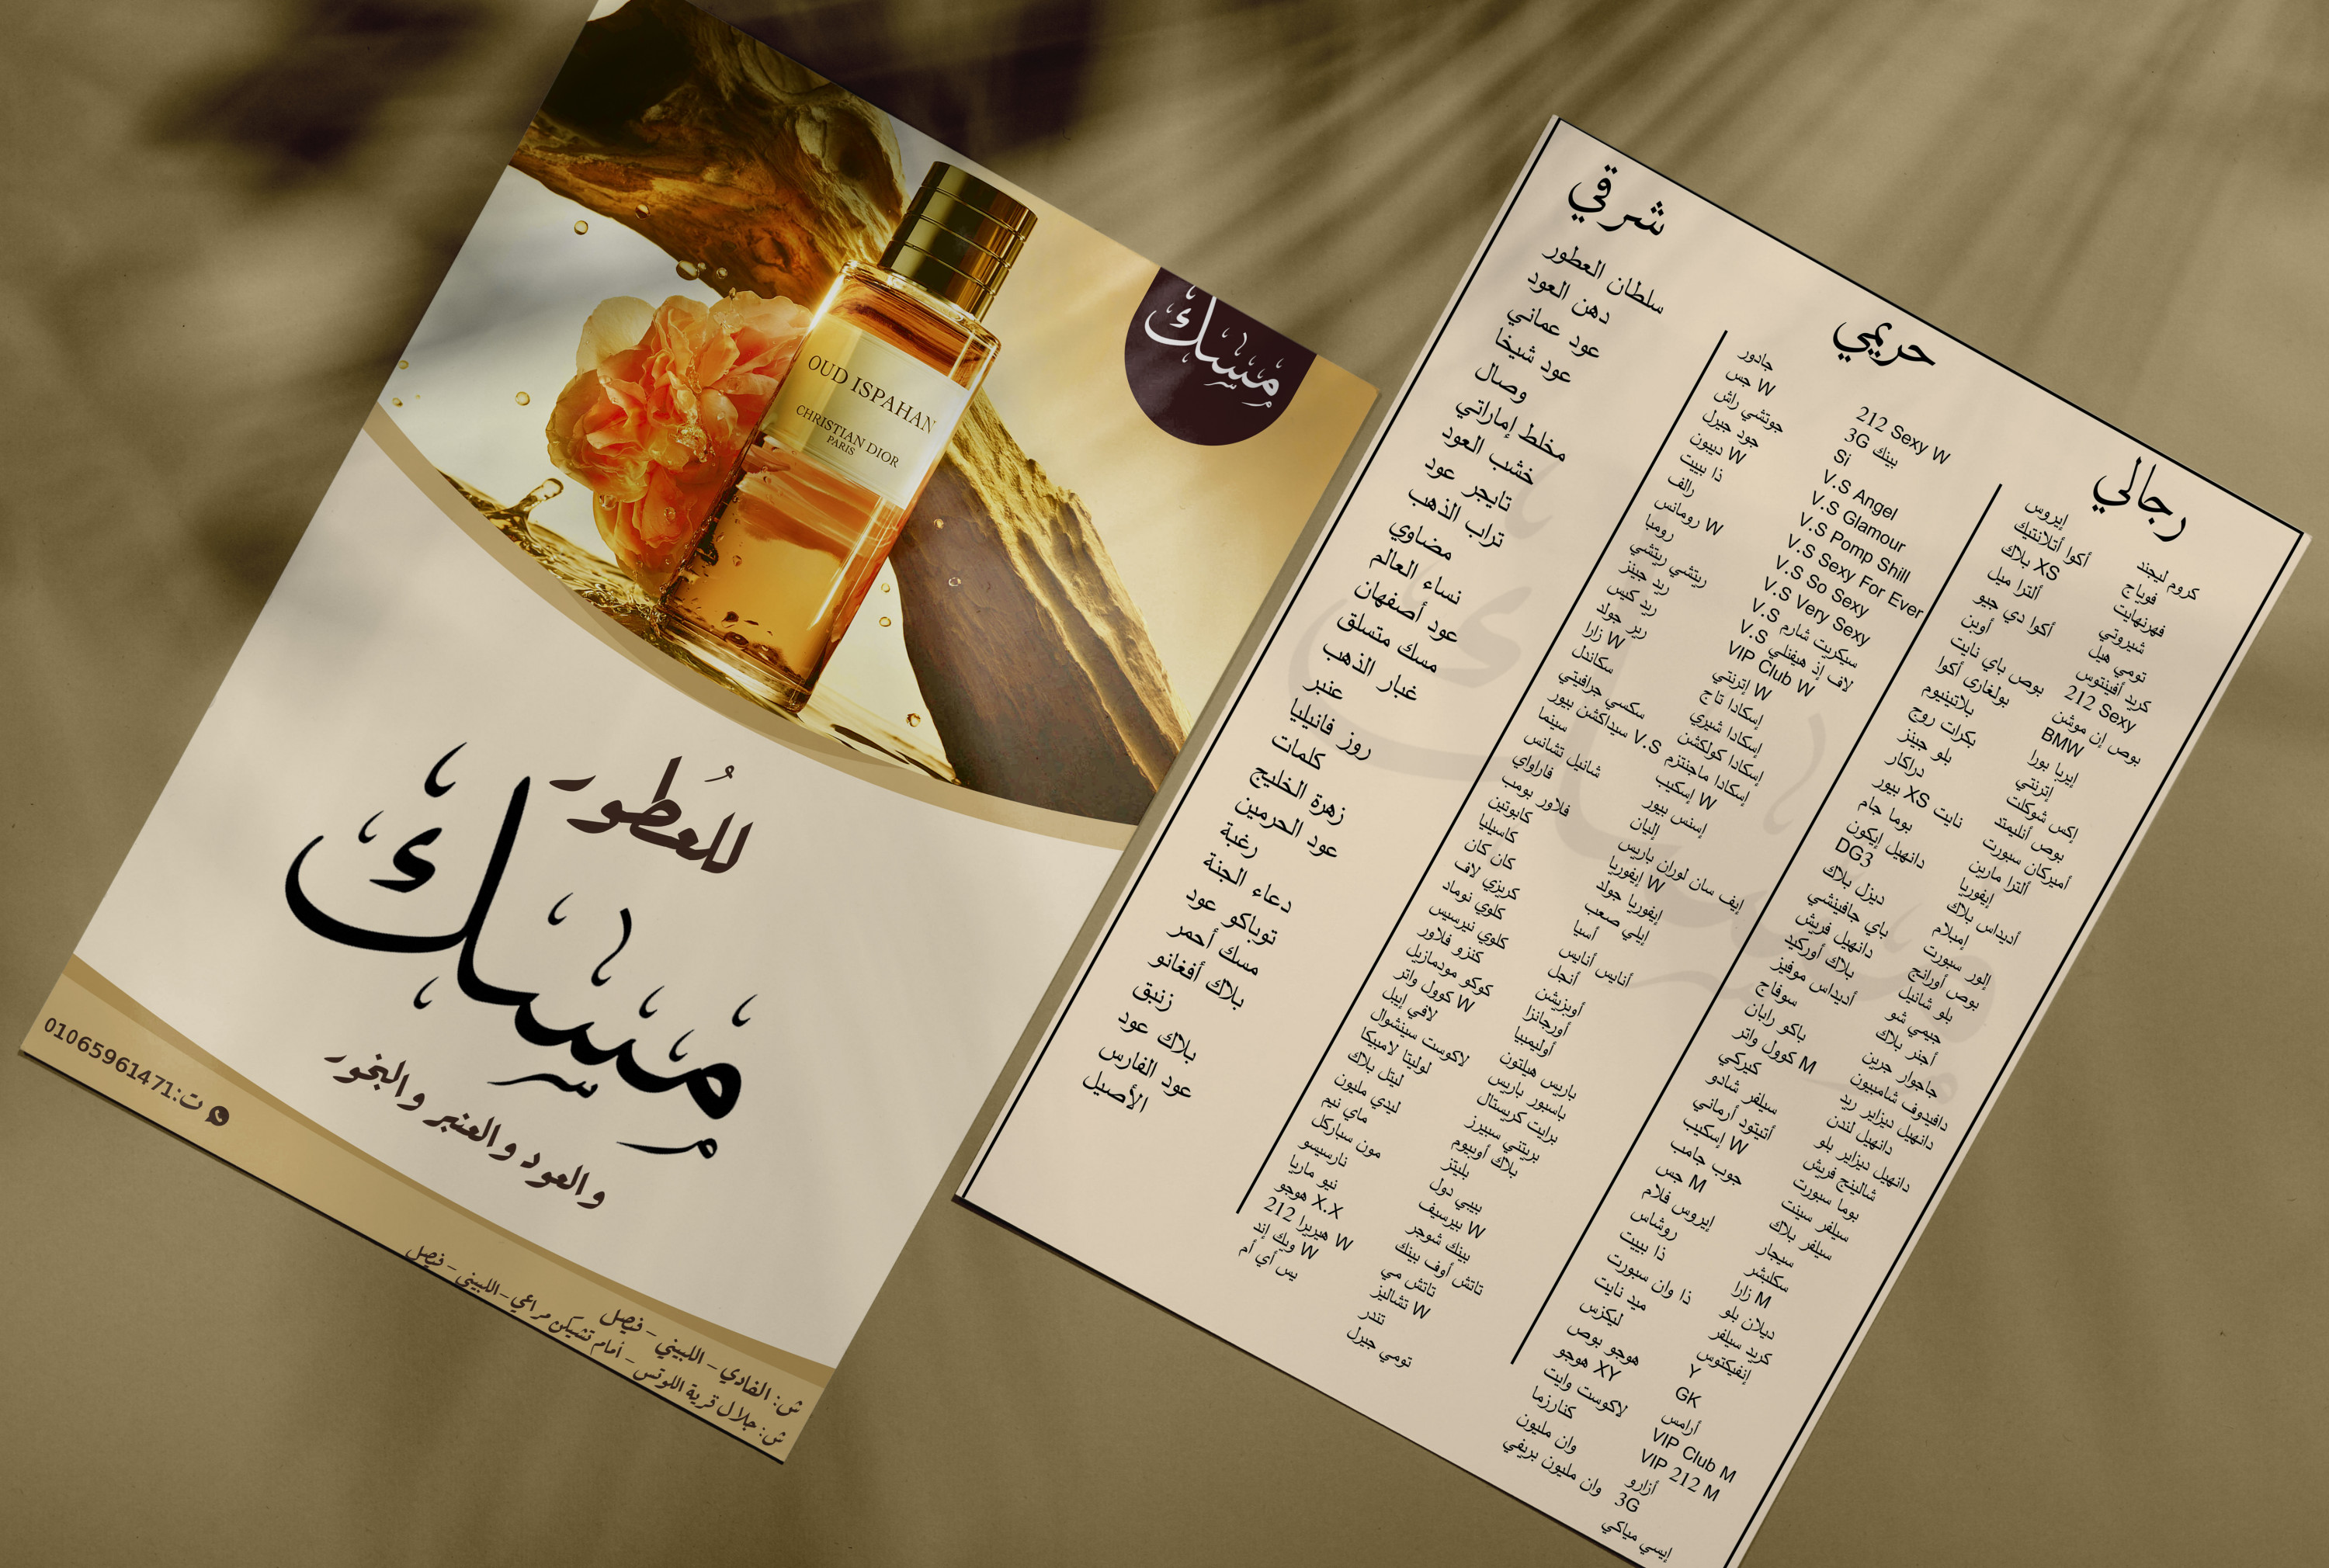 مسك
OUD ISPAHAN
CHRISTIAN DIOR
PARIS
للعُطور
مسك
والعود والعنبر والبخور
ت:01065961471
ش: الفادي - اللبيني - فيصل
ش: جلال قرية اللوتس - أمام تشيكن مراعي - اللبيني - فيصل
رجالي
كروم ليجند
فوياج
فهرنهايت
شيروتي
تومي هيل
كريد أفينتوس
212 Sexy
بوص إن موشن
BMW
إيريا بورا
إترنتي
إكس شوكلت
بوص أنليمتد
أميركان سبورت
ألترا مارين
إيفوريا
أديداس بلاك
إمبلام
إلور سبورت
بوص أورانج
بلو شانيل
جيمي شو
أجنر بلاك
جاجوار جرين
دافيدوف شامبيون
دانهيل ديزاير ريد
دانهيل لندن
دانهيل ديزاير بلو
شالينج فريش
بوما سبورت
سيلفر سينت
سيلفر بلاك
سيجار
سكلبشر
زارا M
ديلان بلو
كريد سيلفر
إنفيكتوس
Y
GK
أرامس
VIP Club M
VIP 212 M
أزارو
3G
إيسي مياكي
إيروس
أكوا أتلانتيك
XS بلاك
ألترا ميل
أكوا دي جيو
أوبن
بوص باي نايت
بولغارى أكوا
بلاتينيوم
بكرات روج
بلو جينز
دراكار
نايت XS بيور
بوما جام
دانهيل إيكون
DG3
ديزل بلاك
باي جافينشي
دانهيل فريش
بلاك أوركيد
أديداس موفيز
سوفاج
باكو رابان
كوول واتر M
كيركي
سيلفر شادو
أتيتود أرماني
إسكيب W
جوب جامب
جس M
إيروس فلام
روشاس
ذا بييت
ذا وان سبورت
ميد نايت
ليكزس
هوجو بوص
هوجو XY
لاكوست وايت
كنارزما
وان مليون
وان مليون بريفي
حريمي
212 Sexy W
3G بينك
Si
V.S Angel
V.S Glamour
V.S Pomp Shill
V.S Sexy For Ever
V.S So Sexy
V.S Very Sexy
V.S سيكريت شارم
V.S لاف إذ هيفنلي
VIP Club W
إترنتي W
إسكادا تاج
إسكادا شيري
إسكادا كولكشن
إسكادا ماجنتزم
إسكيب W
إسنس بيور
إليان
إيف سان لوران باريس
إيفوريا W
إيفوريا جولد
إيلي صعب
أسيا
أنايس أنايس
أنجل
أوبزيشن
أورجانزا
أوليمبيا
باريس هيلتون
باسبور باريس
برايت كريستال
بريتني سبيرز
بلاك أوبيوم
بليتز
بيبي دول
بيرسيف W
بينك شوجر
تاتش أوف بينك
تاتش مي
تشاليز W
تندر
تومي جيرل
جادور
جس W
جوتشي راش
جود جيرل
ديبون W
ذا بييت
رالف
رومانس W
رومبا
ريتشي ريتشي
ريد جينز
ريد كيس
رير جولد
زارا W
سكاندل
سكسي جرافيتي
V.S سيداكشن بيور
سينما
شانيل تشانس
فاراواي
فلاور بومب
كابوتين
كاسيليا
كان كان
كريزي لاف
كلوي نوماد
كلوي نيرسيس
كنزو فلاور
كوكو مودمازيل
كوول واتر W
لافي إبيل
لاكوست سينشوال
لوليتا لامبيكا
ليتل بلاك
ليدي مليون
ماي نيم
مون سباركل
نارسيسو
نيو ماريا
هوجو X.X
212 هيريرا W
ويك إند W
يس أي أم
شرقي
سلطان العطور
دهن العود
عود عماني
عود شيخا
وصال
مخلط إماراتي
خشب العود
تايجر عود
تراب الذهب
مضاوي
نساء العالم
عود أصفهان
مسك متسلق
غبار الذهب
عنبر
روز فانيليا
كلمات
زهرة الخليج
عود الحرمين
رغبة
دعاء الجنة
توباكو عود
مسك أحمر
بلاك أفغانو
زنبق
بلاك عود
عود الفارس
الأصيل